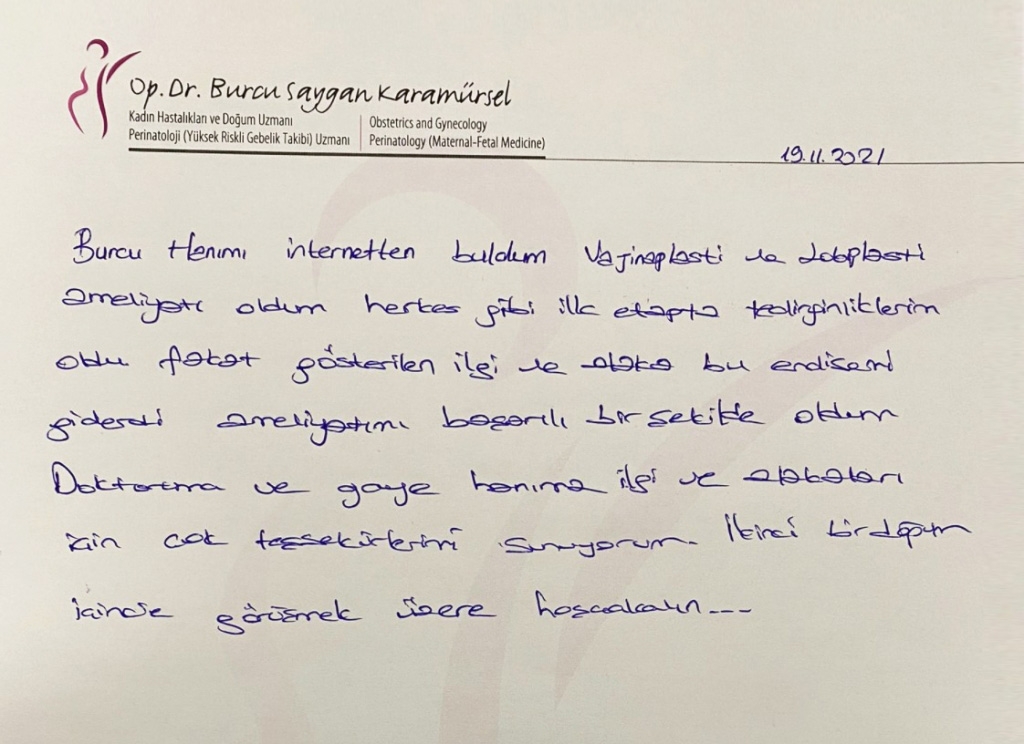 Op. Dr. Burcu Saygan Karamürsel
Kadın Hastalıkları ve Doğum Uzmanı
Perinatoloji (Yüksek Riskli Gebelik Takibi) Uzmanı
Obstetrics and Gynecology
Perinatology (Maternal-Fetal Medicine)
19.11.2021
Burcu Hanımı internetten buldum Vajinaplasti ve Labplasti
ameliyatı oldum herkes gibi ilk etapta tedirginliklerim
oldu fakat gösterilen ilgi ve alaka bu endisemi
giderdi ameliyatımı başarılı bir sekilde oldum
Doktoruma ve gaye hanıma ilgi ve alakaları
için cok tessekürlerimi sunuyorum. İkinci bir doğum
icinde görüsmek üzere hoscakalın---